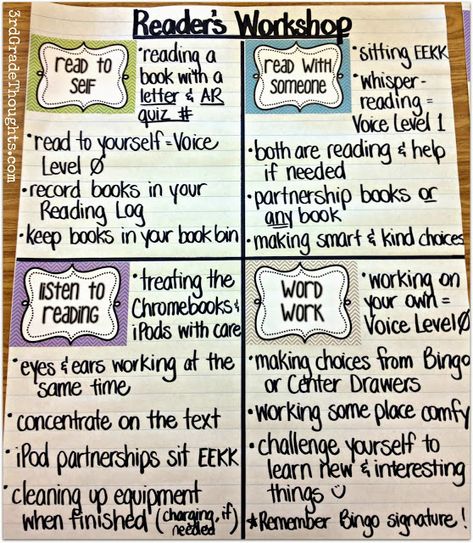 3rdGradeThoughts.com
Reader's Workshop
read to
self
• reading a
book with a
letter & AR
quiz #
• read to yourself = Voice
Level 0
• record books in your
Reading Log
• keep books in your book bin
read with
someone
• sitting EEKK
• whisper-
reading =
Voice Level 1
• both are reading & help
if needed
• partnership books or
any book
• making smart & kind choices
listen to
reading
• treating the
Chromebooks &
iPods with care
• eyes & ears working at the
same time
• concentrate on the text
• iPod partnerships sit EEKK
• cleaning up equipment
when finished (charging, if
needed)
word
work
• working on
your own =
Voice Level 0
• making choices from Bingo
or Center Drawers
• working some place comfy
• challenge yourself to
learn new & interesting
things ☺
*Remember Bingo signature!